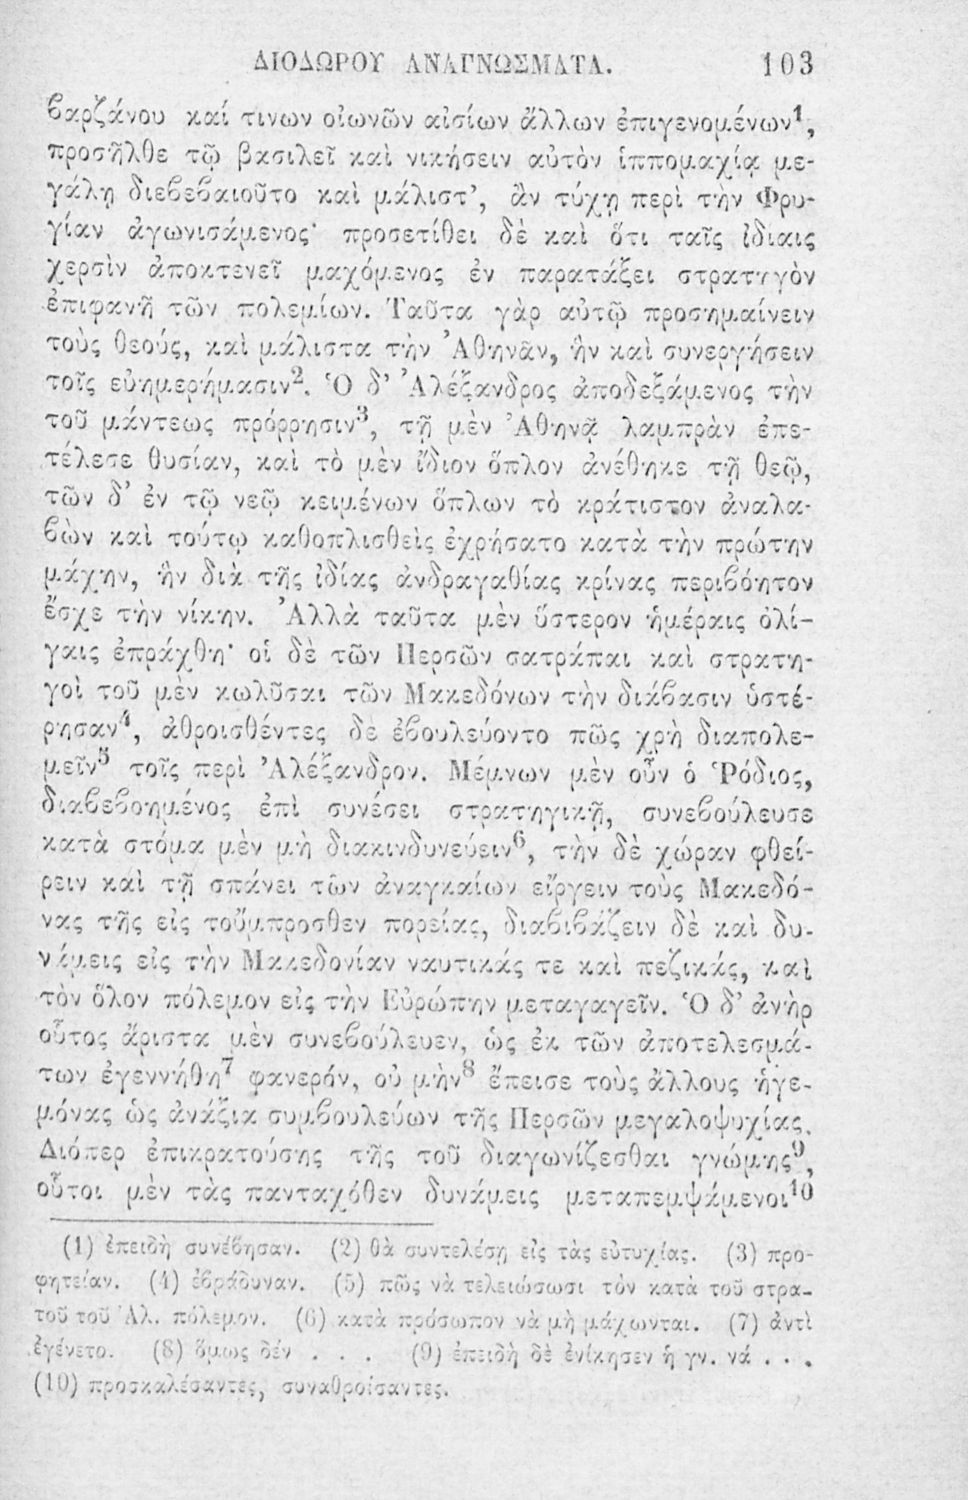 ΔΙΟΔΩΡΟΥ ΑΝΑΓΝΩΣΜΑΤΑ. 103
βαρζάνου καί τινων οἰωνῶν αἰσίων ἄλλων ἐπιγενομένων¹,
προσῆλθε τῷ βασιλεῖ καὶ νικήσειν αὐτὸν ἱππομαχίᾳ με-
γάλῃ διεβεβαιοῦτο καὶ μάλιστ’, ἂν τύχῃ περὶ τὴν Φρυ-
γίαν ἀγωνισάμενος· προσετίθει δὲ καὶ ὅτι ταῖς ἰδίαις
χερσὶν ἀποκτενεῖ μαχόμενος ἐν παρατάξει στρατηγὸν
ἐπιφανῆ τῶν πολεμίων. Ταῦτα γὰρ αὐτῷ προσημαίνειν
τοὺς θεούς, καὶ μάλιστα τὴν Ἀθηνᾶν, ἣν καὶ συνεργήσειν
τοῖς εὐημερήμασιν². Ὁ δ’ Ἀλέξανδρος ἀποδεξάμενος τὴν
τοῦ μάντεως πρόρρησιν³, τῇ μὲν Ἀθηνᾷ λαμπρὰν ἐπε-
τέλεσε θυσίαν, καὶ τὸ μὲν ἴδιον ὅπλον ἀνέθηκε τῇ θεῷ,
τῶν δ’ ἐν τῷ νεῷ κειμένων ὅπλων τὸ κράτιστον ἀναλα-
βὼν καὶ τούτῳ καθοπλισθεὶς ἐχρήσατο κατὰ τὴν πρώτην
μάχην, ἣν διὰ τῆς ἰδίας ἀνδραγαθίας κρίνας περιβόητον
ἔσχε τὴν νίκην. Ἀλλὰ ταῦτα μὲν ὕστερον ἡμέραις ὀλί-
γαις ἐπράχθη· οἱ δὲ τῶν Περσῶν σατράπαι καὶ στρατη-
γοὶ τοῦ μὲν κωλῦσαι τῶν Μακεδόνων τὴν διάβασιν ὑστέ-
ρησαν⁴, ἀθροισθέντες δὲ ἐβουλεύοντο πῶς χρὴ διαπολε-
μεῖν⁵ τοῖς περὶ Ἀλέξανδρον. Μέμνων μὲν οὖν ὁ Ῥόδιος,
διαβεβοημένος ἐπὶ συνέσει στρατηγικῇ, συνεβούλευσε
κατὰ στόμα μὲν μὴ διακινδυνεύειν⁶, τὴν δὲ χώραν φθεί-
ρειν καὶ τῇ σπάνει τῶν ἀναγκαίων εἴργειν τοὺς Μακεδό-
νας τῆς εἰς τοὔμπροσθεν πορείας, διαβιβάζειν δὲ καὶ δυ-
νάμεις εἰς τὴν Μακεδονίαν ναυτικάς τε καὶ πεζικάς, καὶ
τὸν ὅλον πόλεμον εἰς τὴν Εὐρώπην μεταγαγεῖν. Ὁ δ’ ἀνὴρ
οὗτος ἄριστα μὲν συνεβούλευεν, ὡς ἐκ τῶν ἀποτελεσμά-
των ἐγεννήθη⁷ φανερόν, οὐ μὴν⁸ ἔπεισε τοὺς ἄλλους ἡγε-
μόνας ὡς ἀνάξια συμβουλεύων τῆς Περσῶν μεγαλοψυχίας.
Διόπερ ἐπικρατούσης τῆς τοῦ διαγωνίζεσθαι γνώμης⁹,
οὗτοι μὲν τὰς πανταχόθεν δυνάμεις μεταπεμψάμενοι¹⁰
(1) ἐπειδὴ συνέβησαν. (2) θὰ συντελέσῃ εἰς τὰς εὐτυχίας. (3) προ-
φητείαν. (4) ἐβράδυναν. (5) πῶς νὰ τελειώσωσι τὸν κατὰ τοῦ στρα-
τοῦ τοῦ Ἀλ. πόλεμον. (6) κατὰ πρόσωπον νὰ μὴ μάχωνται. (7) ἀντὶ
ἐγένετο. (8) ὅμως δέν . . . (9) ἐπειδὴ δὲ ἐνίκησεν ἡ γν. νά . . .
(10) προσκαλέσαντες, συναθροίσαντες.